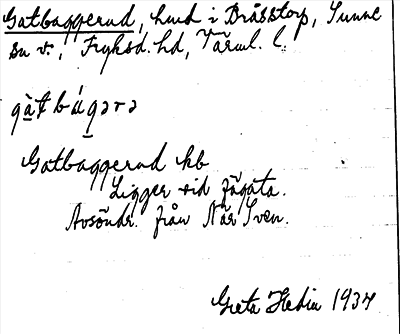 Gatbaggerud, hmd i Bråstorp, Sunne
sn v., Fryksd. hd, Värml. l.
Gatbaggerud kb
Ligger vid fägata.
Avsöndr. från När Sven.
Greta Hedin 1937